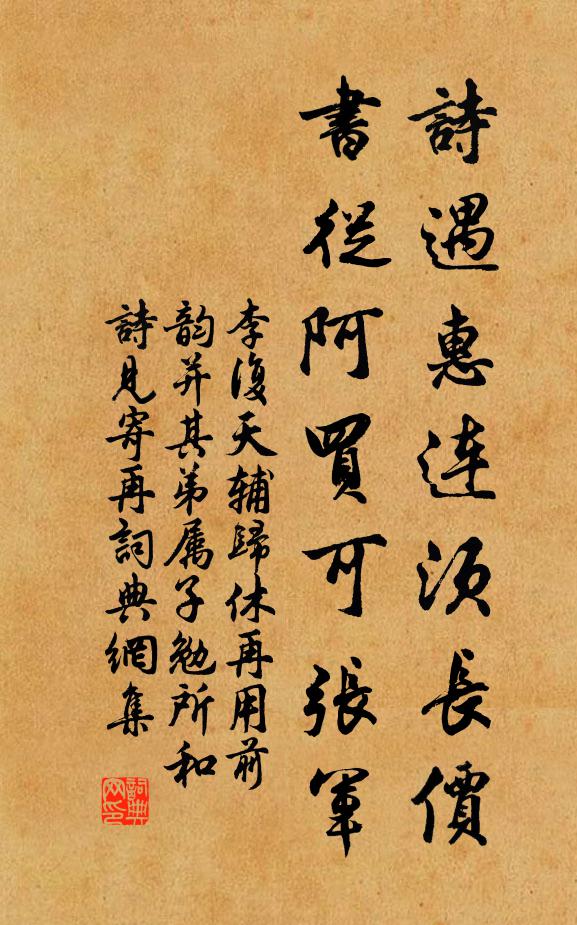 詩遇惠連須長價
書從阿買可張軍
李復天輔歸休再用前
韵并其弟属子勉所和
詩見寄再詞典網集
詞典网印